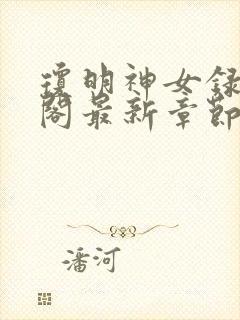 瓊明神女録
閣最新章節
潘河